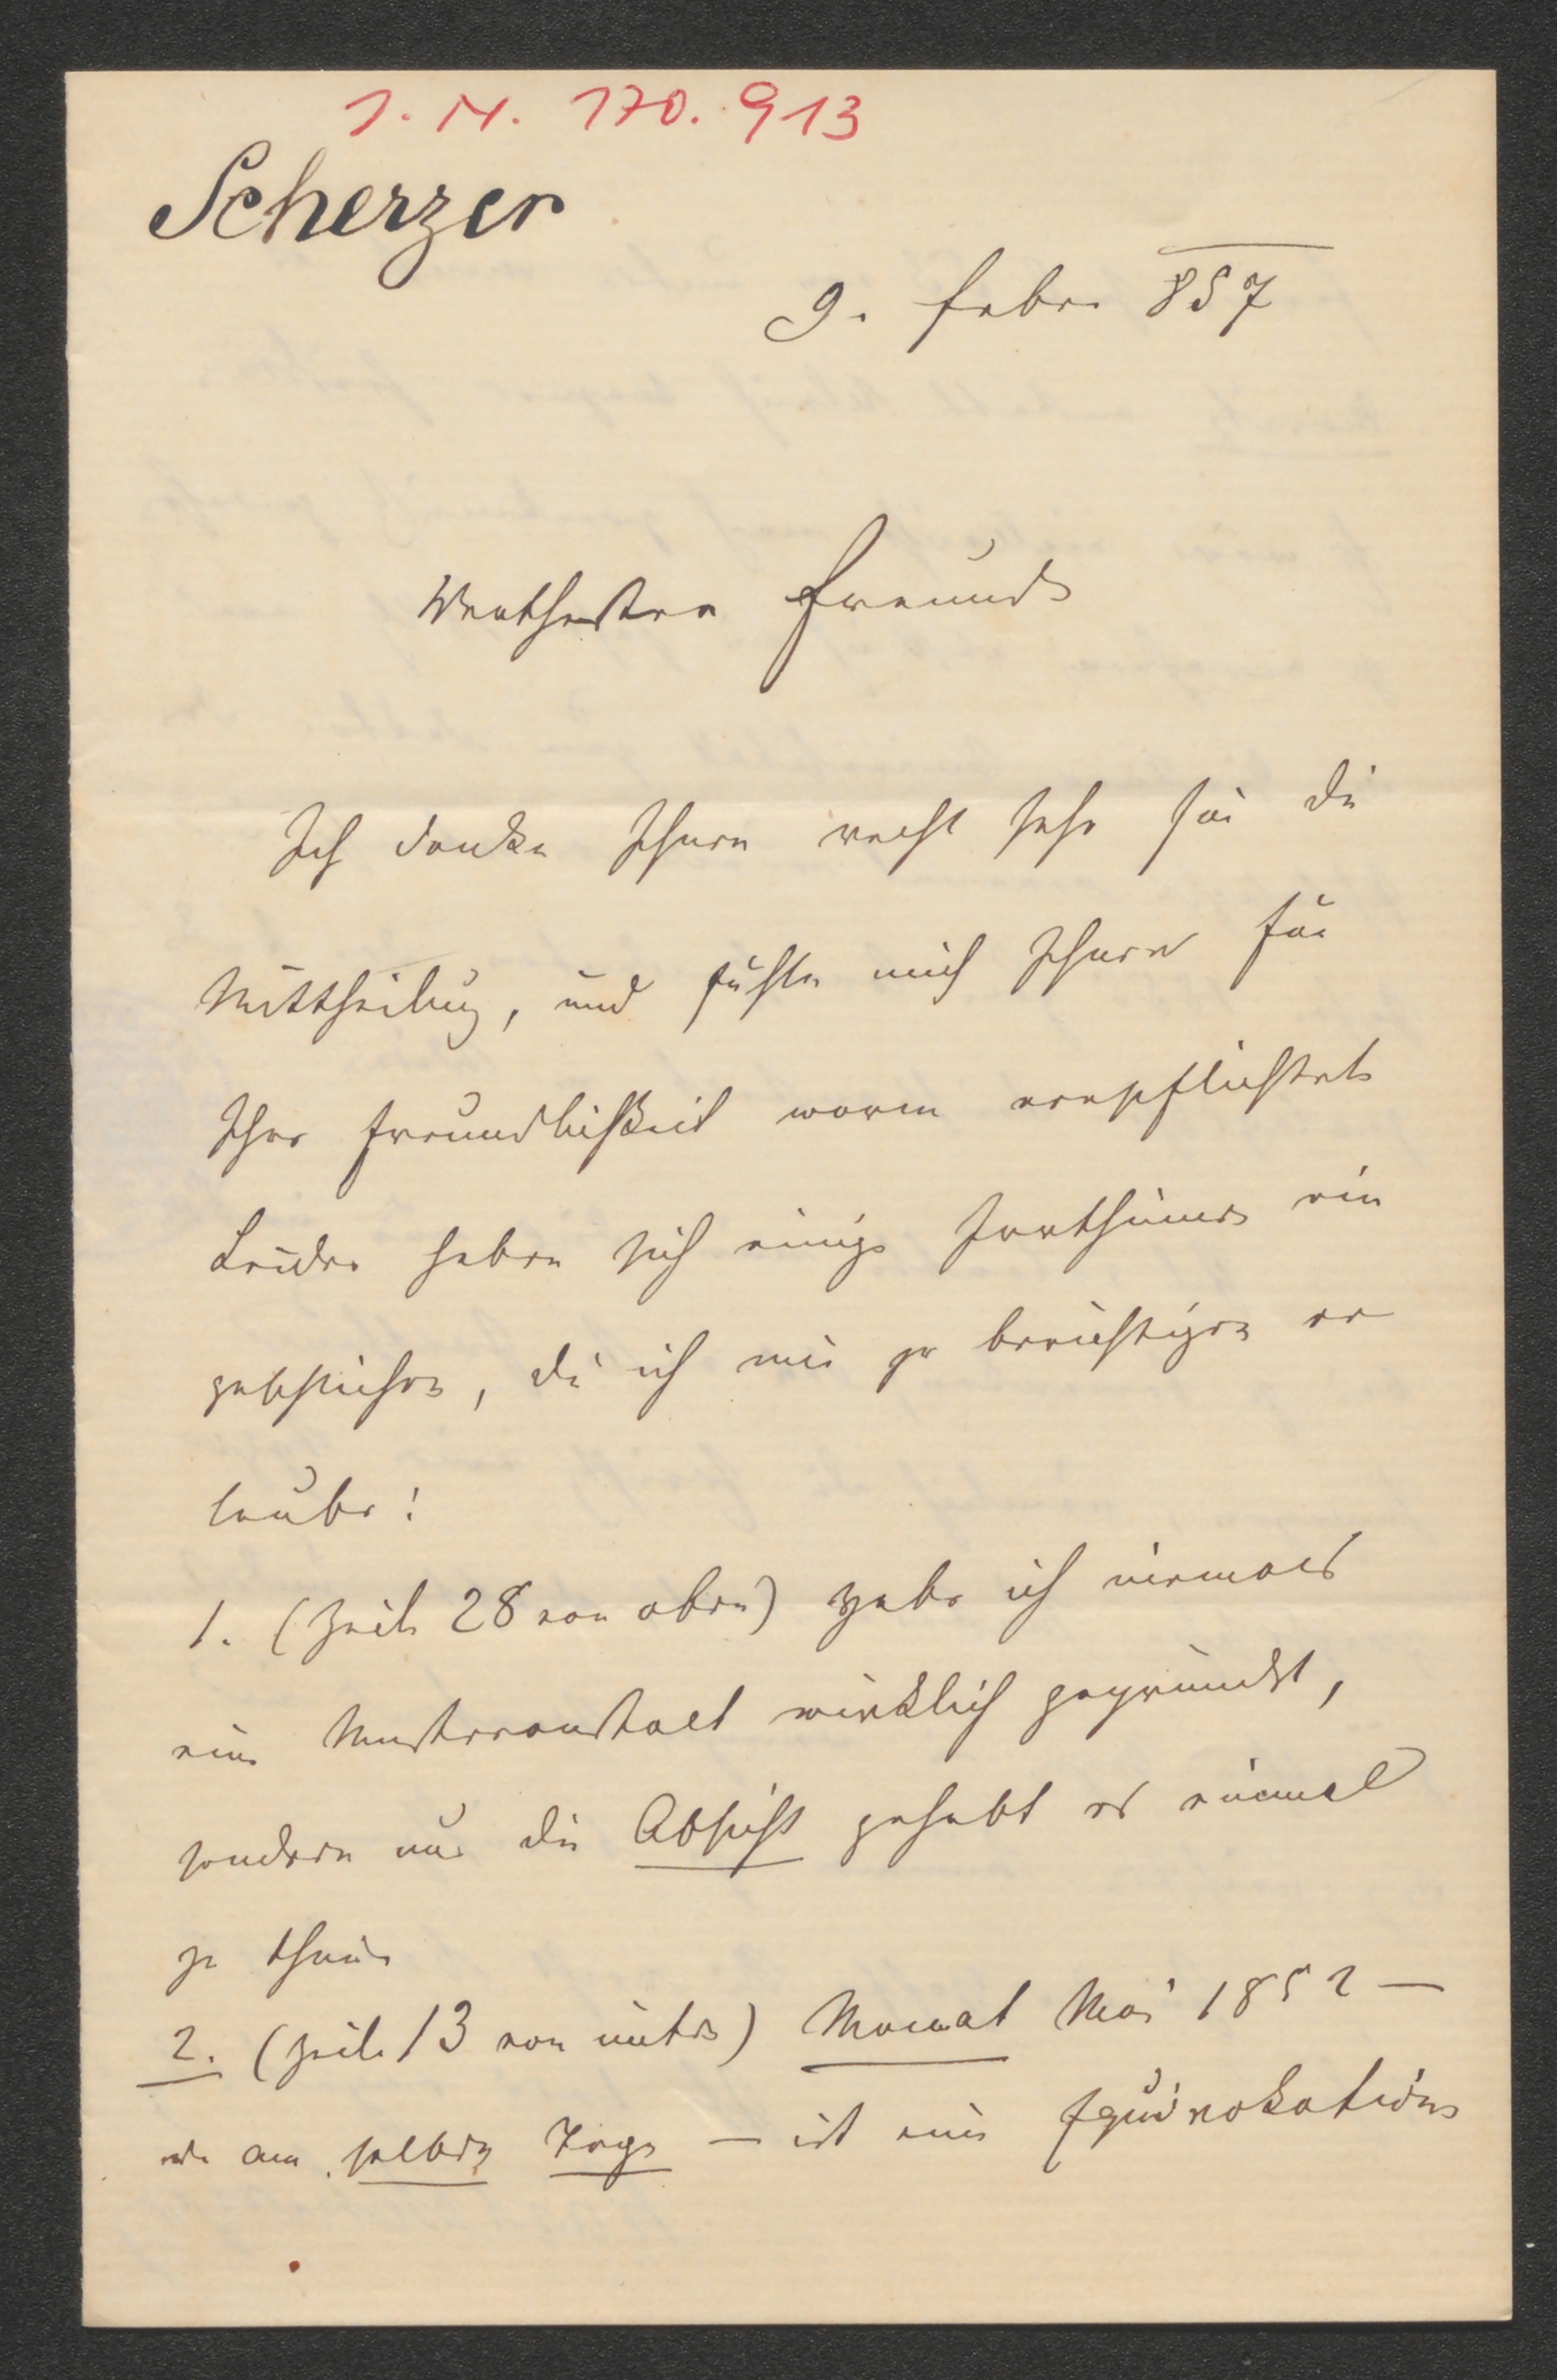 I. N. 170.913
Scherzer
9. Febr. 857
Werthester Freund
Ich danke Ihnen recht sehr für die
Mittheilung, und fühle mich Ihnen für
Ihre Freundlichkeit warm verpflichtet
Leider haben sich einige Irrthümer ein
geschlichen, die ich mir zu berichtigen er
laube:
1. (Zeile 28 von oben) habe ich niemals
eine Musteranstalt wirklich gegründet,
sondern nur die Absicht gehabt es einmal
zu thun
2. (Zeile 13 von unten) Monat Mai 1852 —
am selben Tage — ist eine Equivokation